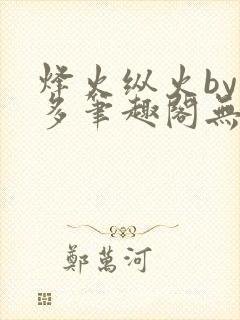 烽火纵火by
多笔趣阁無
鄭萬河